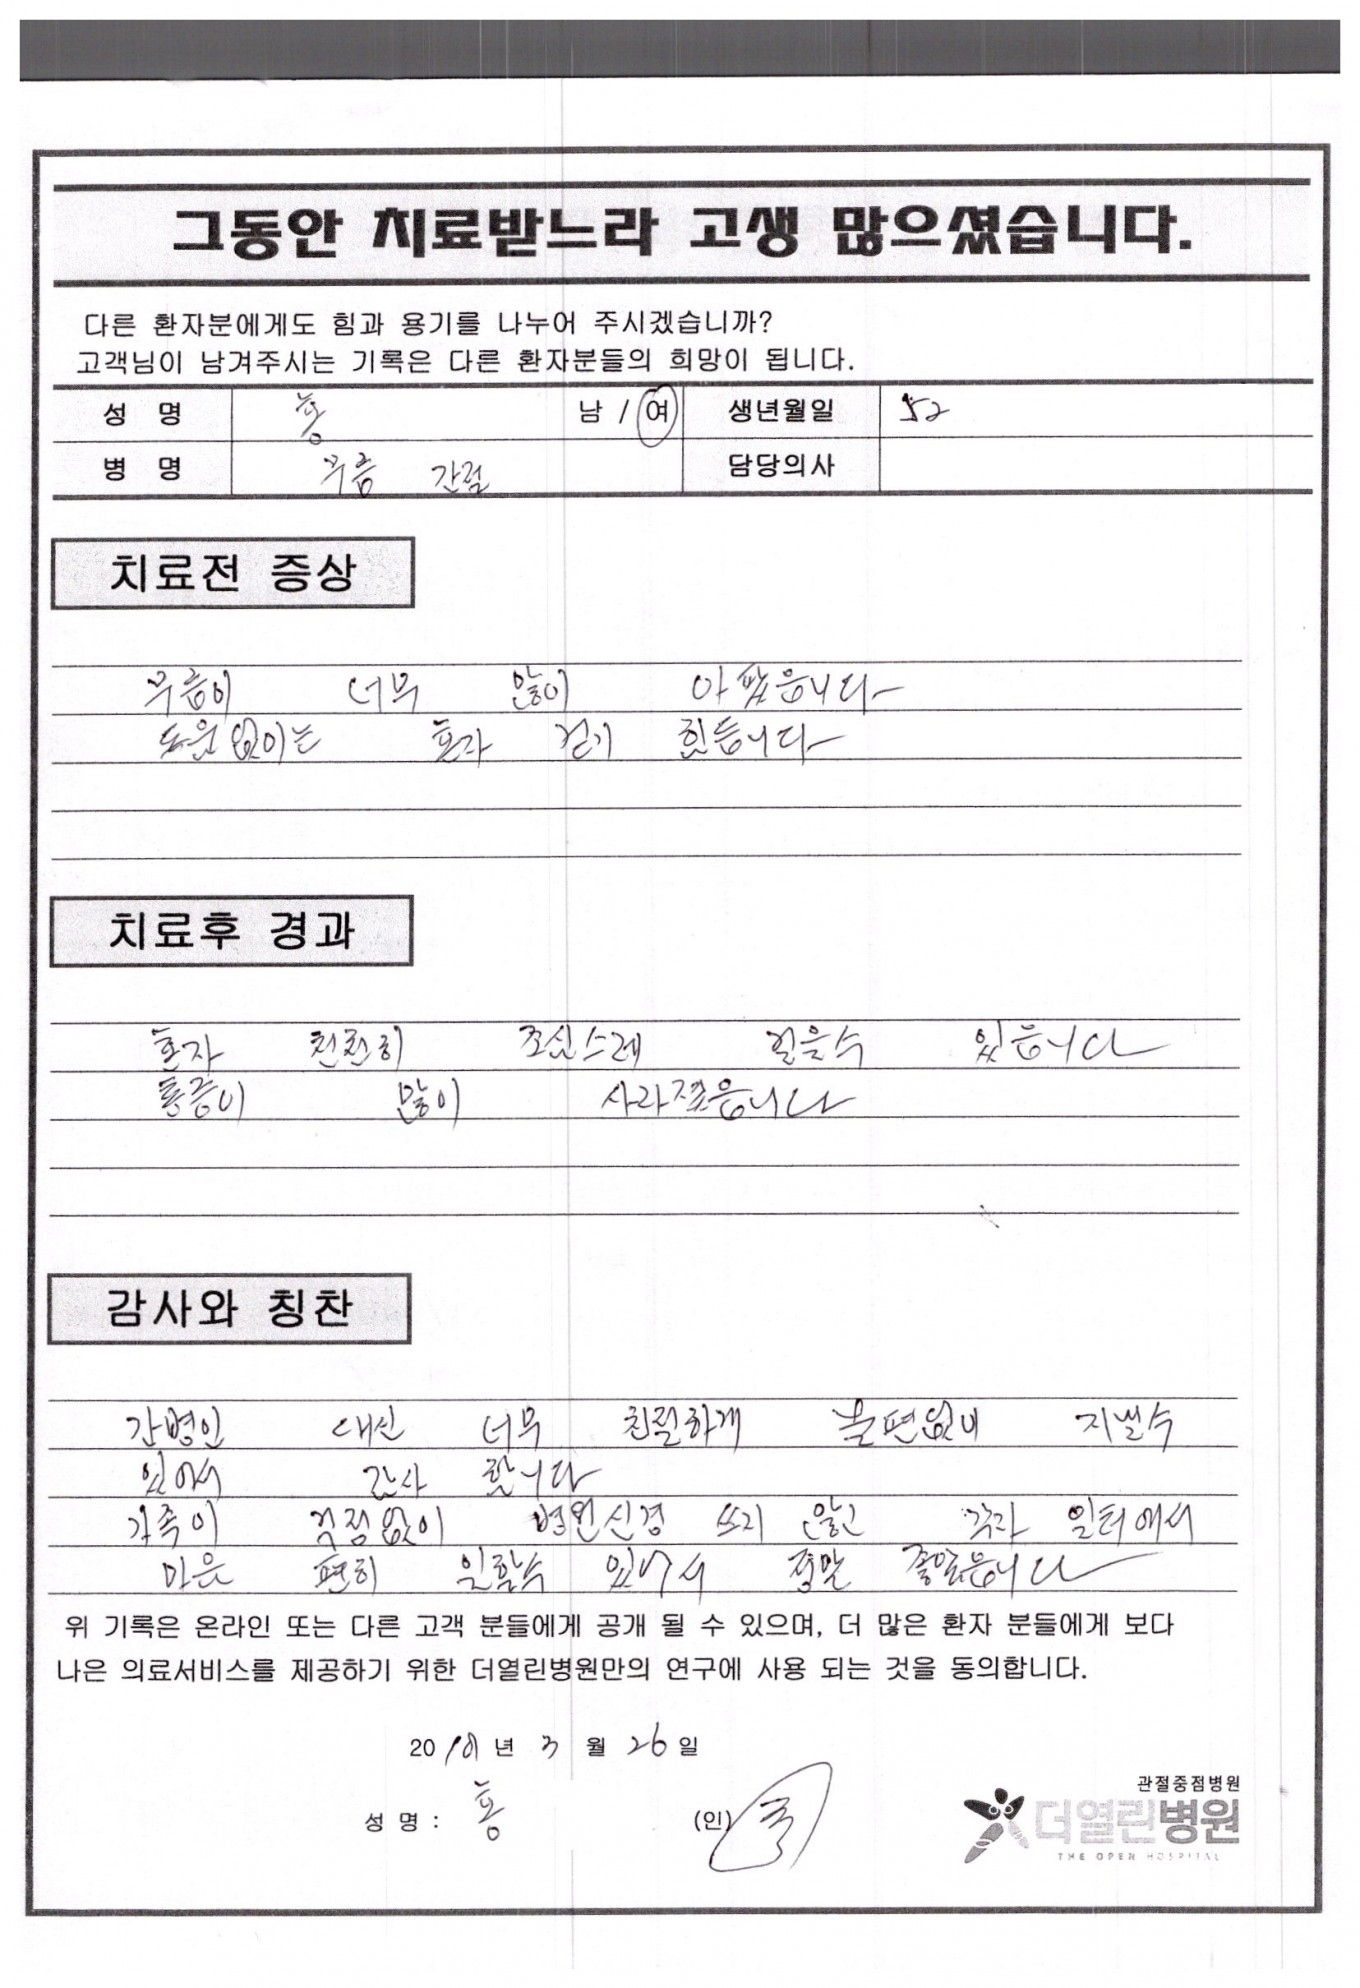 그동안 치료받느라 고생 많으셨습니다.
다른 환자분에게도 힘과 용기를 나누어 주시겠습니까?
고객님이 남겨주시는 기록은 다른 환자분들의 희망이 됩니다.
성 명 홍 남 / 여 생년월일 52
병 명 무릎 간절 담당의사
치료전 증상
무릎이 너무 많이 아팠읍니다
도움없이는 혼자 걷기 힘듭니다
치료후 경과
혼자 천천히 조심스레 걸을수 있읍니다
통증이 많이 사라졌읍니다
감사와 칭찬
간병인 대신 너무 친절하게 불편없이 지낼수
있어서 감사 합니다
가족이 걱정없이 병원신경 쓰지 않고 각자 일터에서
마음 편히 일할수 있어서 정말 좋았읍니다
위 기록은 온라인 또는 다른 고객 분들에게 공개 될 수 있으며, 더 많은 환자 분들에게 보다
나은 의료서비스를 제공하기 위한 더열린병원만의 연구에 사용 되는 것을 동의합니다.
2018년 3월 26일
성 명 : 홍 (인)
관절중점병원
더열린병원
THE OPEN HOSPITAL